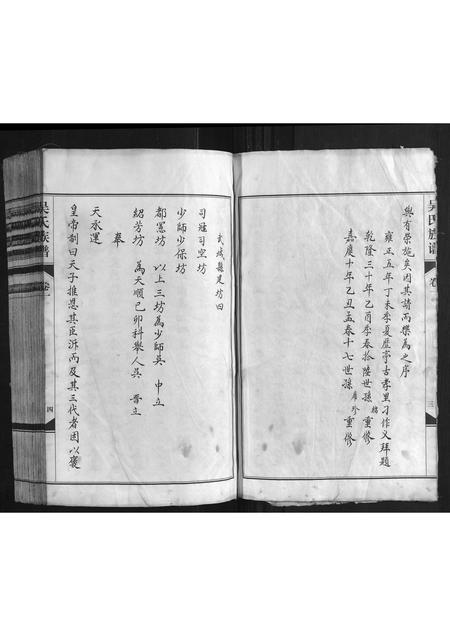 吴氏族谱 卷一 三
與有榮施矣因其請而樂為之序
雍正五年丁未季夏歷亭古孝里刁作义拜題
乾隆三十年乙酉季春拾陸世孫 重修
嘉慶十年乙丑孟春十七世孫 珍 重修
武城縣建坊曰
司寇司空坊
少師少保坊
都憲坊 以上三坊為少師吳 中立
紹芳坊 為天順己卯科舉人吳 晉立
奉
天承運
皇帝制曰天子推恩其臣泝而及其三代者因以褒
吴氏族谱 卷一 四